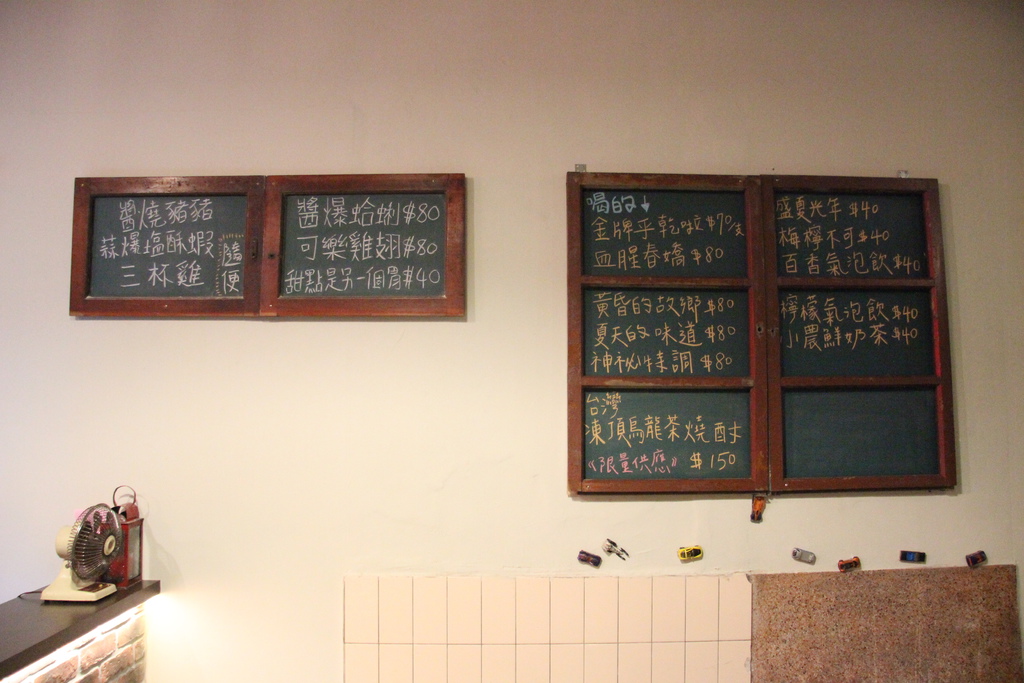 醬燒豬豬
蒜爆塩酥蝦
三杯雞
隨便
醬爆蛤蜊$80
可樂雞翅$80
甜點是另一個胃$40
喝的↓
金牌乎乾啦$70/支
血腥春嬌$80
黃昏的故鄉$80
夏天的味道$80
神祕特調$80
台灣
凍頂烏龍茶燒酎
《限量供應》$150
盛夏光年$40
梅檸不可$40
百香氣泡飲$40
檸檬氣泡飲$40
小農鮮奶茶$40